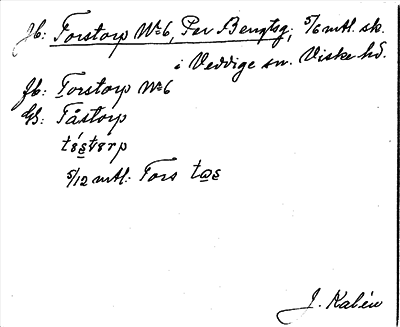 Jb: Torstorp № 6, Per Bengtsg, 5/6 mtl. sk.
i Veddige sn. Viske hd.
Jb: Torstorp № 6
Ut: Tåstorp
5/12 mtl. Tors
J. Kalén